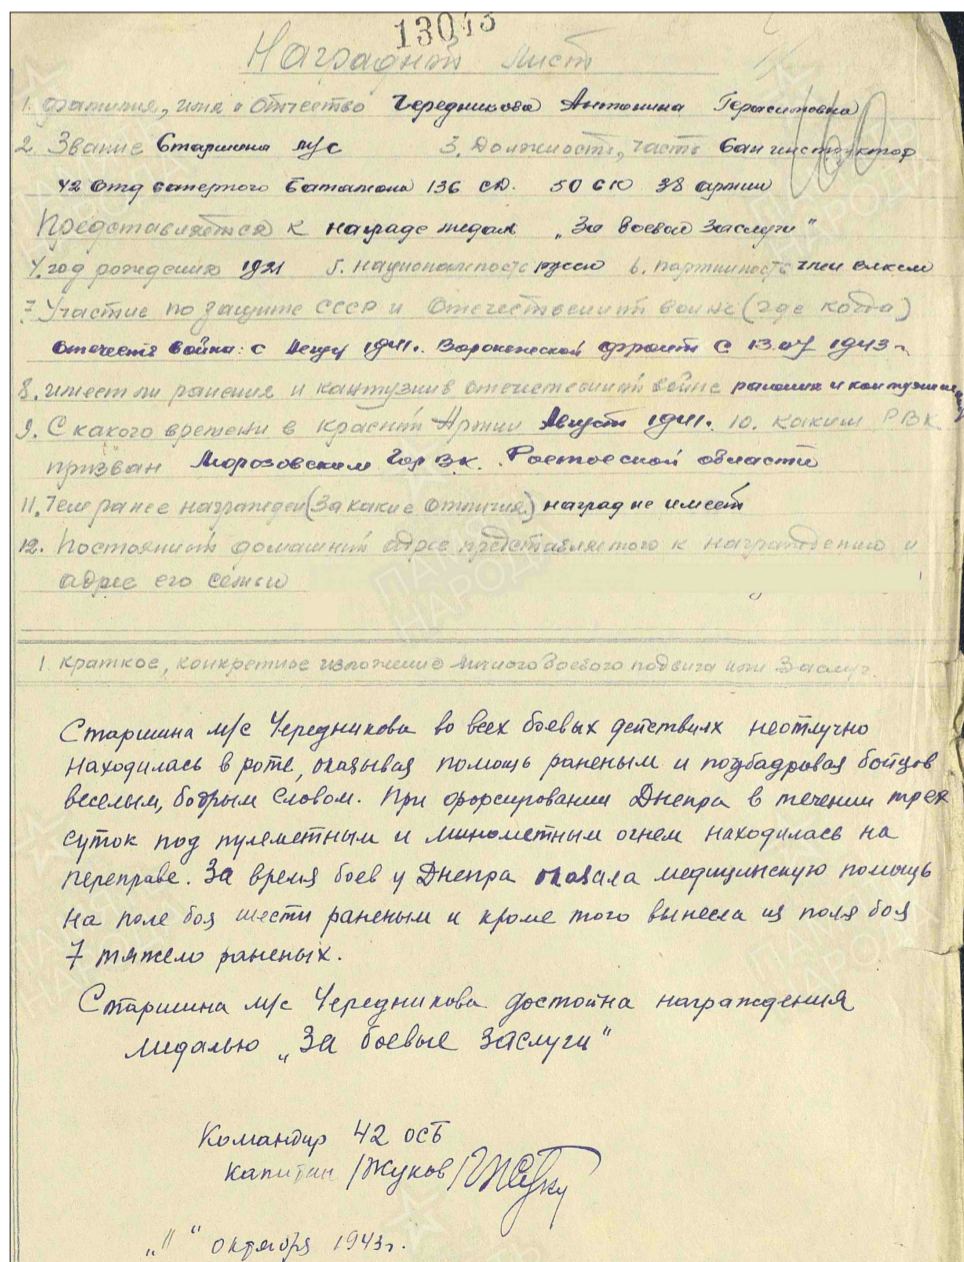 13043
Наградной лист
1. Фамилия, имя и отчество Чередникова Антонина Герасимовна
160
2. Звание Старшина м/с 3. Должность, часть Санинструктор
42 отд саперного батальона 136 СД. 50 СК 38 армии
Представляется к награде медали „За боевые заслуги"
4. год рождения 1921 5. национальность русск 6. партийность член влксм
7. Участие по защите СССР и Отечественной войне (где когда)
Отечеств война: с 1941г. Воронежский фронт с 13.07 1943 г.
8. имеет ли ранения и контузии в отечественной войне ранения и контузии
9. С какого времени в Красной Армии Август 1941г. 10. каким РВК
призван Морозовским Гор ВК. Ростовской области
11. Чем ранее награжден (За какие отличия) наград не имеет
12. Постоянный домашний адрес представляемого к награждению и
адрес его семьи
1. Краткое, конкретное изложение личного боевого подвига или заслуг.
Старшина м/с Чередникова во всех боевых действиях неотлучно
находилась в роте, оказывая помощь раненым и подбадровая бойцов
веселым, бодрым словом. При форсировании Днепра в течении трех
суток под пулеметным и минометным огнем находилась на
переправе. За время боев у Днепра оказала медицинскую помощь
на поле боя шести раненым и кроме того вынесла из поля боя
7 тяжело раненых.
Старшина м/с Чередникова достойна награждения
медалью „За боевые заслуги"
Командир 42 ОСБ
капитан /Жуков/
„ " октября 1943г.
ПАМЯТЬ НАРОДА